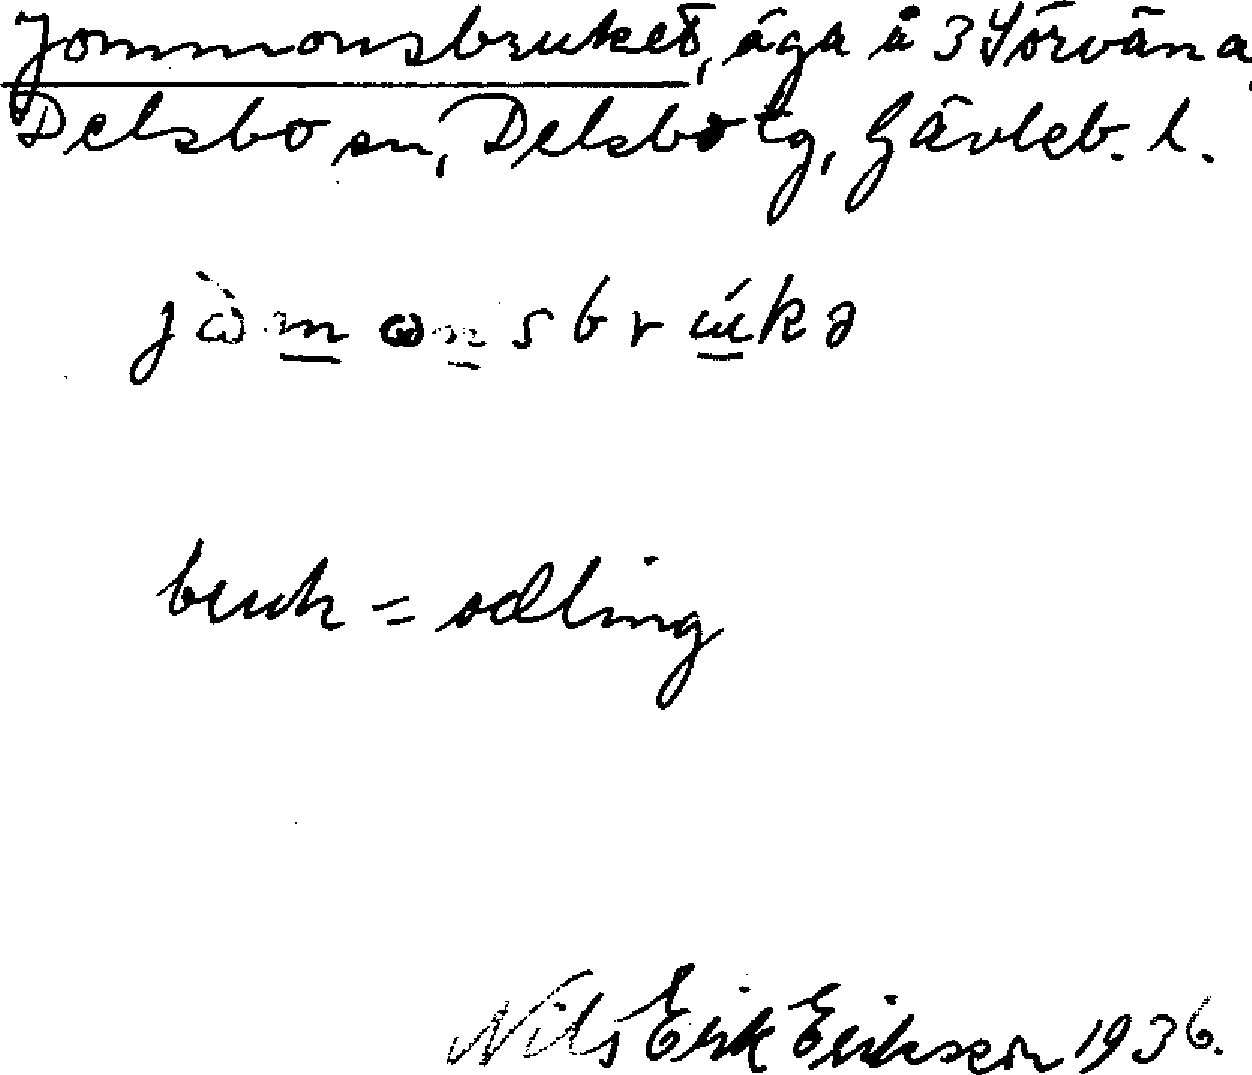 Jommonsbruket, äga å 3 Sörväna,
Delsbo sn, Delsbo tg, Gävleb. l.
jὼmωnsbrúkə
bruk = odling
Nils Erik Erikson 1936.